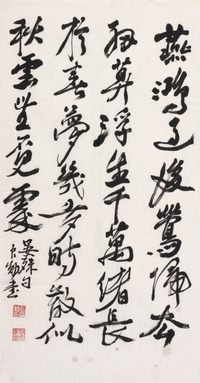 燕鴻過後鶯歸去
細算浮生千萬緒長
於春夢幾多時散似
秋雲無覓處
晏殊句
書